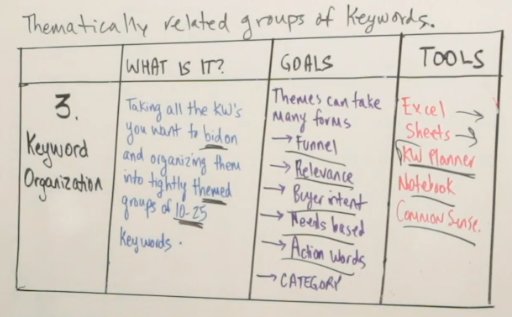 Thematically related groups of Keywords.
WHAT IS IT?
GOALS
TOOLS
3.
Keyword
Organization
Taking all the KW's
you want to bid on
and organizing them
into tightly themed
groups of 10-25
Keywords.
Themes can take
Many forms
→ Funnel
→ Relevance
→ Buyer intent
→ Needs based
→ Action words
→ CATEGORY
Excel →
Sheets →
KW Planner
Notebook
Common Sense.